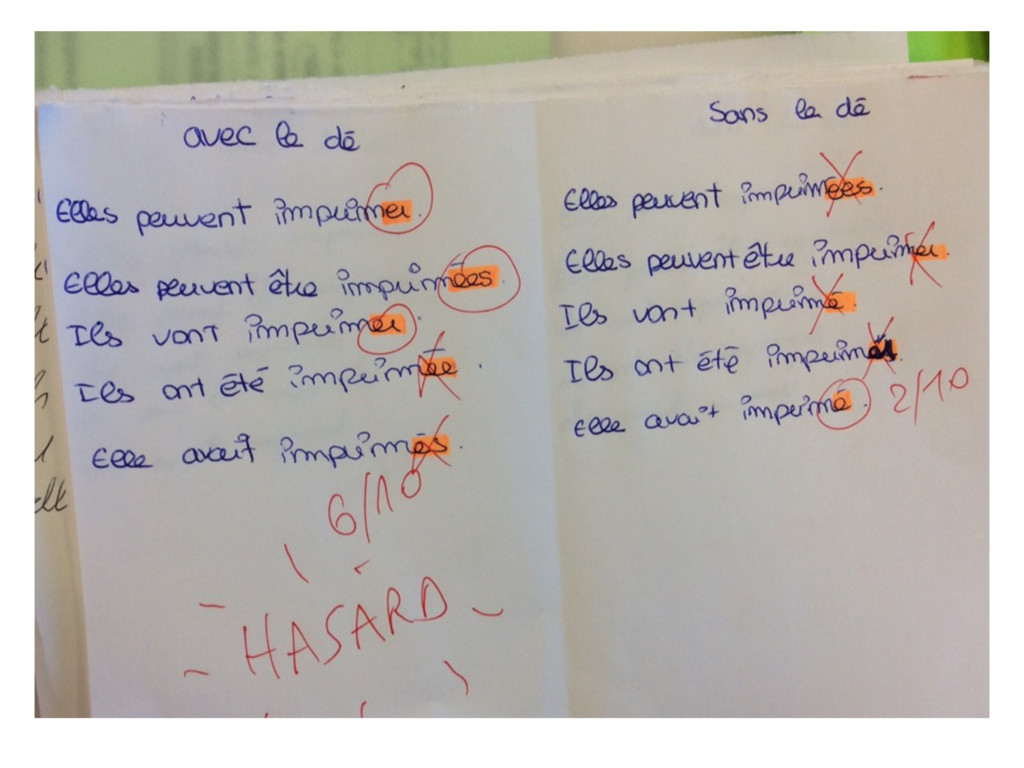 avec le dé
Elles peuvent imprimer.
Elles peuvent être imprimées.
Ils vont imprimer.
Ils ont été imprimée.
Elle avait imprimés.
6/10
HASARD
Sans le dé
Elles peuvent imprimées.
Elles peuvent être imprimer.
Ils vont imprimé.
Ils ont été
Elle avait imprimé.
2/10